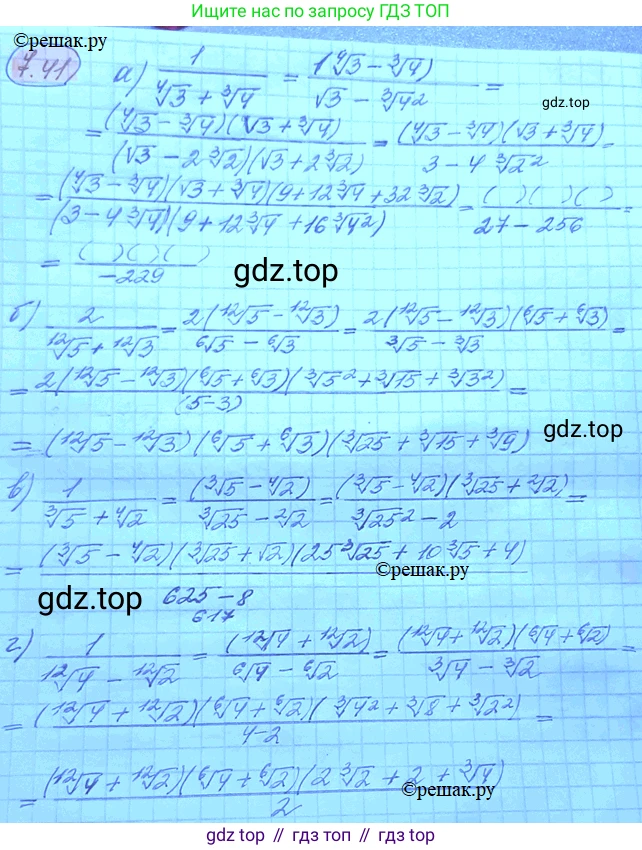 Ищите нас по запросу ГДЗ ТОП
©решак.ру
7.41) а) 1/(⁴√3 + ³√4) = 1(⁴√3 − ³√4)/(√3 − ³√4²) =
= (⁴√3 − ³√4)(√3 + ³√4)/((√3 − 2 ³√2)(√3 + 2 ³√2)) = (⁴√3 − ³√4)(√3 + ³√4)/(3 − 4 ³√2²) =
= (⁴√3 − ³√4)(√3 + ³√4)(9 + 12 ³√4 + 32 ³√2)/((3 − 4 ³√4)(9 + 12 ³√4 + 16 ³√4²)) = ( )( )( )/(27 − 256) =
= ( )( )( )/(−229)
gdz.top
б) 2/(¹²√5 + ¹²√3) = 2(¹²√5 − ¹²√3)/(⁶√5 − ⁶√3) = 2(¹²√5 − ¹²√3)(⁶√5 + ⁶√3)/(³√5 − ³√3) =
= 2(¹²√5 − ¹²√3)(⁶√5 + ⁶√3)(³√5² + ³√15 + ³√3²)/(5−3) =
= (¹²√5 − ¹²√3)(⁶√5 + ⁶√3)(³√25 + ³√15 + ³√9)
gdz.top
в) 1/(³√5 + ⁴√2) = (³√5 − ⁴√2)/(³√25 − ²√2) = (³√5 − ⁴√2)(³√25 + ²√2)/(³√25² − 2) =
= (³√5 − ⁴√2)(³√25 + √2)(25 ³√25 + 10 ³√5 + 4)/(625 − 8)
©решак.ру
gdz.top
617
г) 1/(¹²√4 − ¹²√2) = (¹²√4 + ¹²√2)/(⁶√4 − ⁶√2) = (¹²√4 + ¹²√2)(⁶√4 + ⁶√2)/(³√4 − ³√2) =
= (¹²√4 + ¹²√2)(⁶√4 + ⁶√2)(³√4² + ³√8 + ³√2²)/(4−2) =
= (¹²√4 + ¹²√2)(⁶√4 + ⁶√2)(2 ³√2 + 2 + ³√4)/2
©решак.ру
gdz top // гдз топ // gdz.top